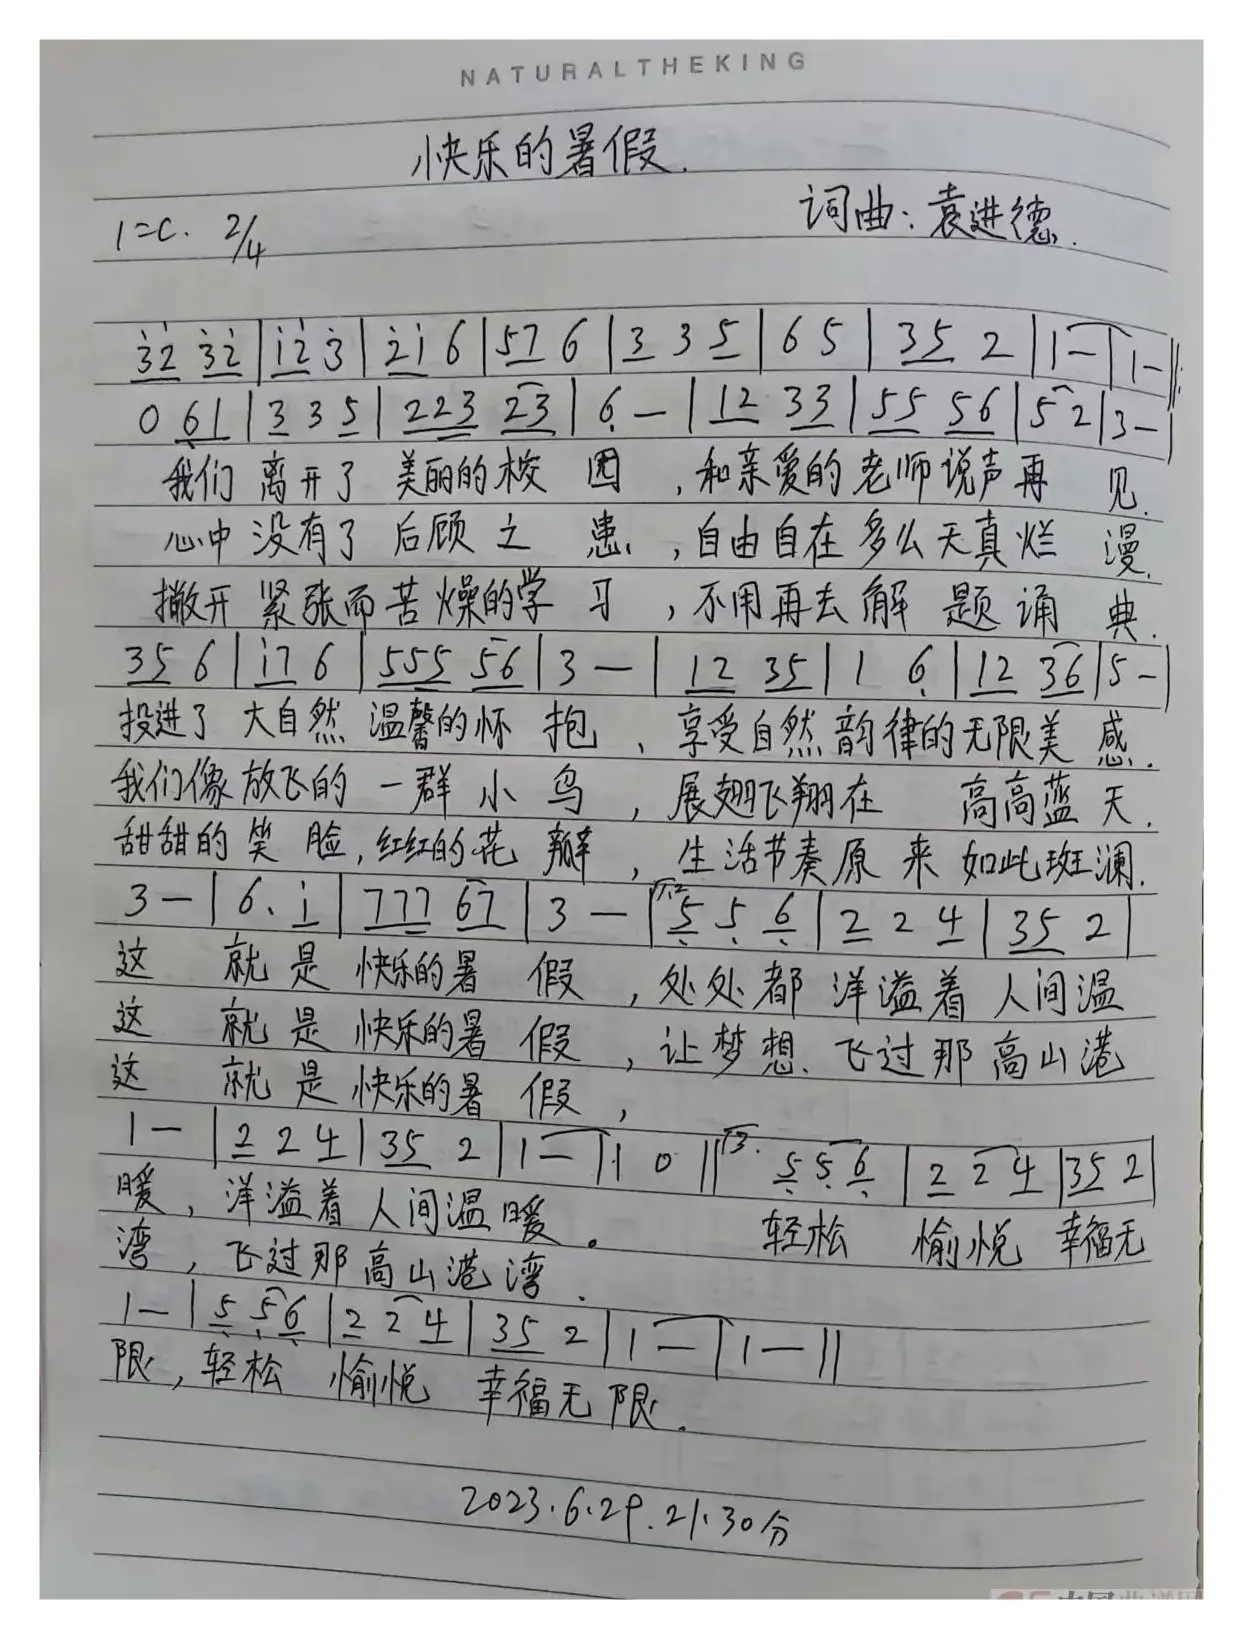 NATURALTHEKING
快乐的暑假.
词曲:袁进德.
1=C. 2/4
3̲̇2̲̇ 3̲̇2̲̇ | 1̲̇2̲̇ 3̇ | 2̲̇1̲̇ 6 | 5̲7̲ 6 | 3̲ 3 5̲ | 6 5 | 3̲5̲ 2 | 1 — | 1 — ‖:
0 6̲̣1̲ | 3̲ 3 5̲ | 2̲2̲3̲ 2̲3̲ | 6̣ — | 1̲2̲ 3̲3̲ | 5̲5̲ 5̲6̲ | 5 2 | 3 — |
我们 离开了 美丽的校 园 ,和亲爱的老师说声再 见.
心中没有了 后顾 之 患 ,自由自在多么天真烂 漫.
撇开 紧张而苦燥的学 习 ,不用再去解 题诵 典.
3̲5̲ 6 | 1̲̇7̲ 6 | 5̲5̲5̲ 5̲6̲ | 3 — | 1̲2̲ 3̲5̲ | 1 6̣ | 1̲2̲ 3̲6̲ | 5 — |
投进了 大自然 温馨的怀 抱 、享受自然韵律的无限美 感.
我们像放飞的 一群 小 鸟 ,展翅飞翔在 高高蓝 天.
甜甜的笑 脸,红红的花 瓣 ,生活节奏原 来 如此斑斓.
3 — | 6. 1̲̇ | 7̲7̲7̲ 6̲7̲ | 3 — | 1.2 5̲̣ 5̣ 6̲̣ | 2̲ 2 4̲ | 3̲5̲ 2 |
这 就 是 快乐的暑 假 ,处处都 洋溢着 人间温
这 就 是 快乐的暑 假 ,让梦想、飞过那 高山港
这 就 是 快乐的暑 假 ,
1 — | 2̲ 2 4̲ | 3̲5̲ 2 | 1 — | 1 0 ‖ 3. 5̲̣ 5̣ 6̲̣ | 2̲ 2 4̲ | 3̲5̲ 2 |
暖,洋溢着 人间温 暖。 轻松 愉悦 幸福无
湾,飞过那高山港 湾.
1 — | 5̲̣ 5̣ 6̲̣ | 2̲ 2 4̲ | 3̲5̲ 2 | 1 — | 1 — ‖
限,轻松 愉悦 幸福无 限.
2023.6.29.21.30分